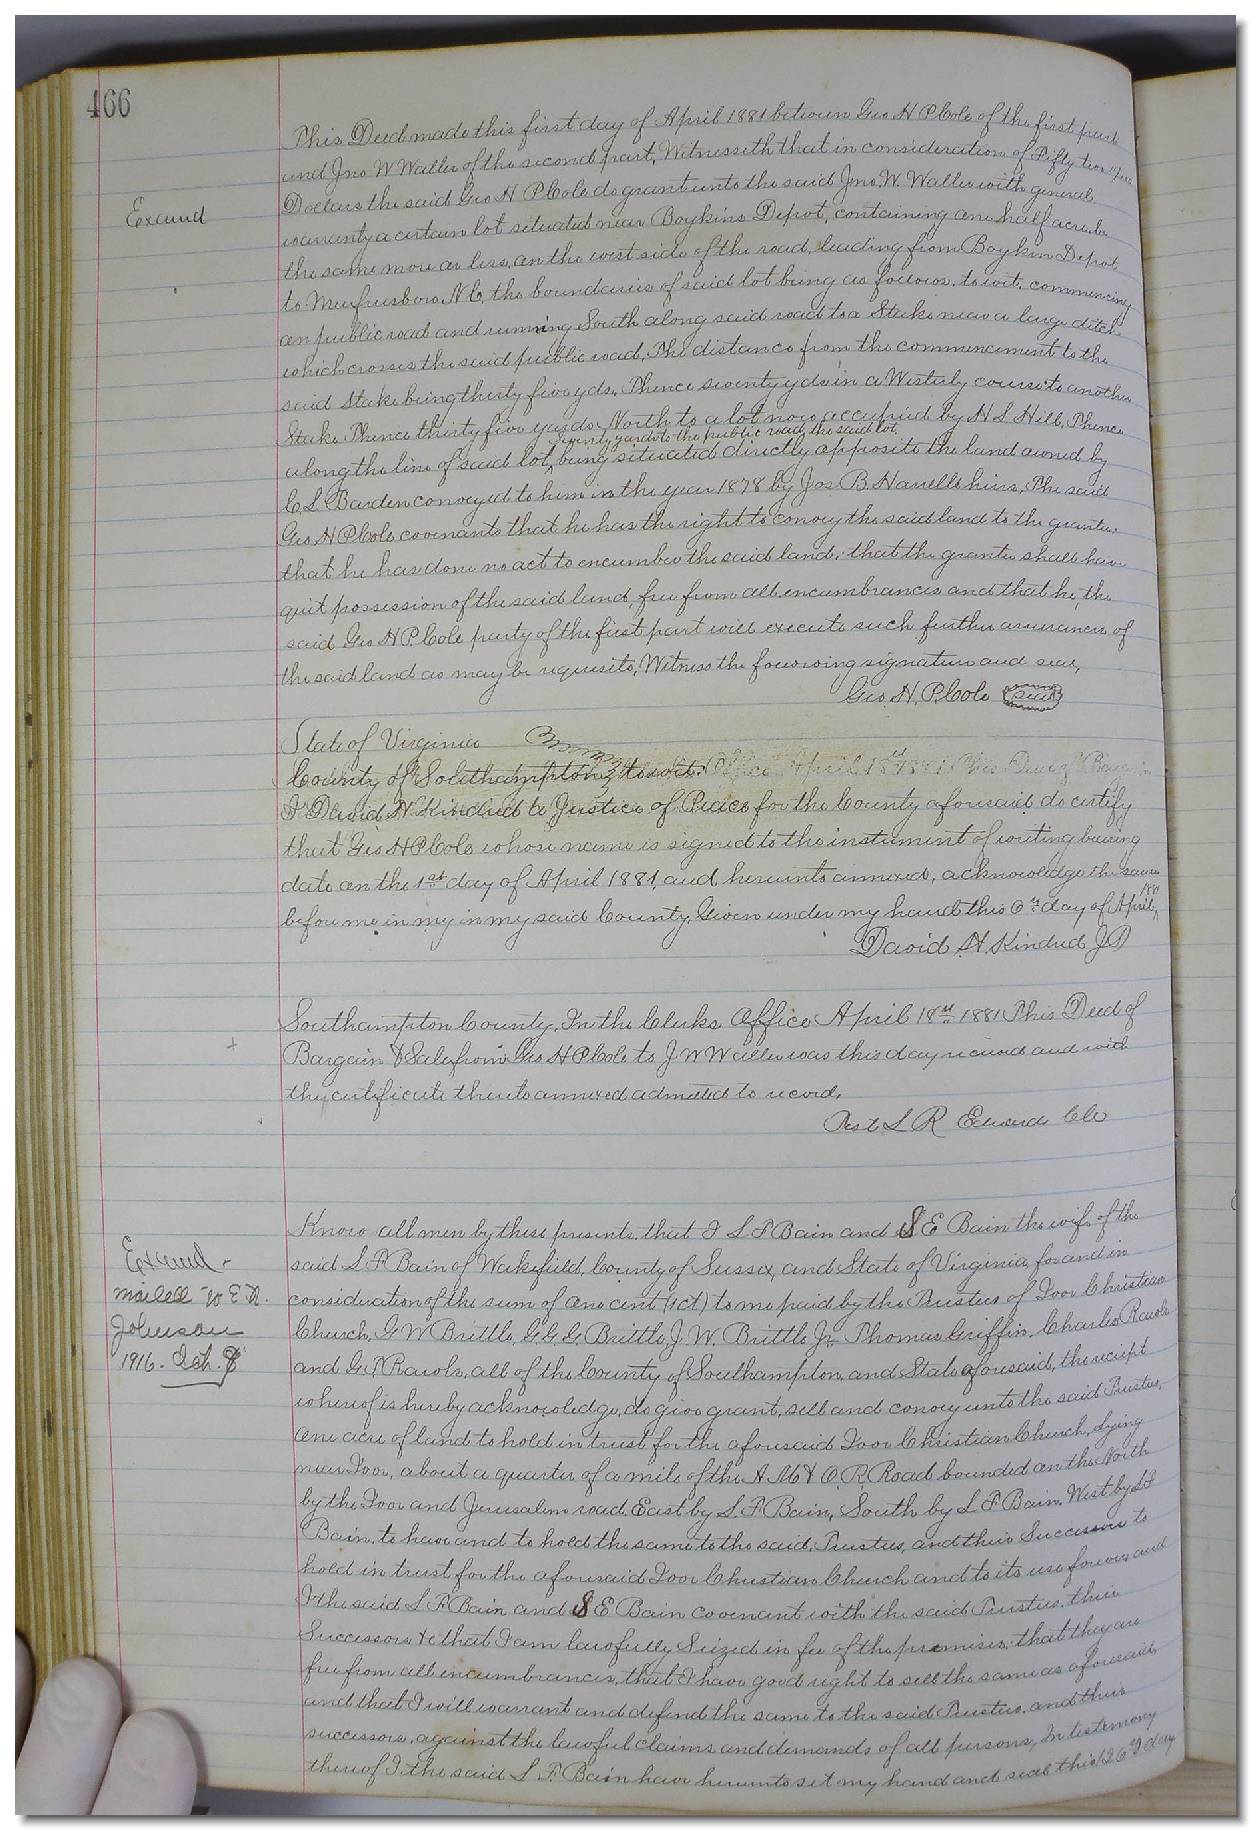 466
This Deed made this first day of April 1881 between Geo H P Cole of the first part
and Jno W Waller of the second part, Witnesseth that in consideration of Fifty two
Dollars the said Geo H P Cole do grant unto the said Jno. W. Waller with general
Exceeud
warranty a certain lot situated near Boykins Depot, containing one half acre, be
the same more or less, on the west side of the road, leading from Boykin Depot
to Murfreesboro N.C. the boundaries of said lot being as follows, to wit, commencing
on public road and running South along said road to a Stake near a large ditch
which crosses the said public road, The distance from the commencement to the
said Stake being thirty five yds, Thence seventy yds in a Westerly course to another
Stake Thence thirty five yards North to a lot now occupied by H L Hill, Thence
seventy yards to the public road, the said lot
along the line of said lot, being situated directly opposite the land owned by
C L Barden conveyed to him in the year 1878 by Jos B. Harrells heirs, The said
Geo H P Cole covenants that he has the right to convey the said land to the grantee,
that he has done no act to encumber the said land; that the grantee shall have
quit possession of the said land free from all encumbrances and that he, the
said Geo H P. Cole party of the first part will execute such further assurances of
the said land as may be requisite, Witness the following signature and seal,
Geo. H. P. Cole Seal
State of Virginia
County of Southampton, to wit: Office April 18th 1881 This Deed of
I David H Kindred a Justice of Peace for the County aforesaid do certify
that Geo H P Cole whose name is signed to the instrument of writing bearing
date on the 1st day of April 1881, and hereunto annexed, acknowledge the same
before me in my in my said County, Given under my hand this day of April, 1881
David H. Kindred J P
Southampton County, In the Clerks Office April 18th 1881 This Deed of
Bargain & Sale from Geo H P Cole to J W Waller was this day received and with
thy certificate thereto annexed admitted to record.
Test L R Edwards Clk
Know all men by these presents, that I L F Bain and S E Bain the wife of the
said L F Bain of Wakefield, County of Sussex, and State of Virginia, for and in
mailed to E. R.
consideration of the sum of one cent (1ct) to me paid by the Trustees of Ivor Christian
Johnson
Church, G W Brittle, G. G. G. Brittle, J. W. Brittle Jr. Thomas Griffin, Charles Rawls
1916. Feb. 8
and G. F. Rawls, all of the County of Southampton, and State aforesaid, the receipt
whereof is hereby acknowledge, do give grant, sell and convey unto the said Trustees,
one acre of land to hold in trust for the aforesaid Ivor Christian Church, lying
near Ivor, about a quarter of a mile of the A. M & O. R. Road bounded on the North
by the Ivor and Jerusalem road, East by L. F. Bain, South by L. F. Bain, West by L F
Bain, to have and to hold the same to the said Trustees, and their Successors to
hold in trust for the aforesaid Ivor Christian Church and to its use forever, and
I the said L F Bain and S E Bain covenant with the said Trustees, their
Successors &c that I am lawfully Seized in fee of the premises; that they are
free from all encumbrances, that I have good right to sell the same as aforesaid,
and that I will warrant and defend the same to the said Trustees, and their
successors, against the lawful claims and demands of all persons, In testimony
thereof I the said L F. Bain have hereunto set my hand and seal this 26th day